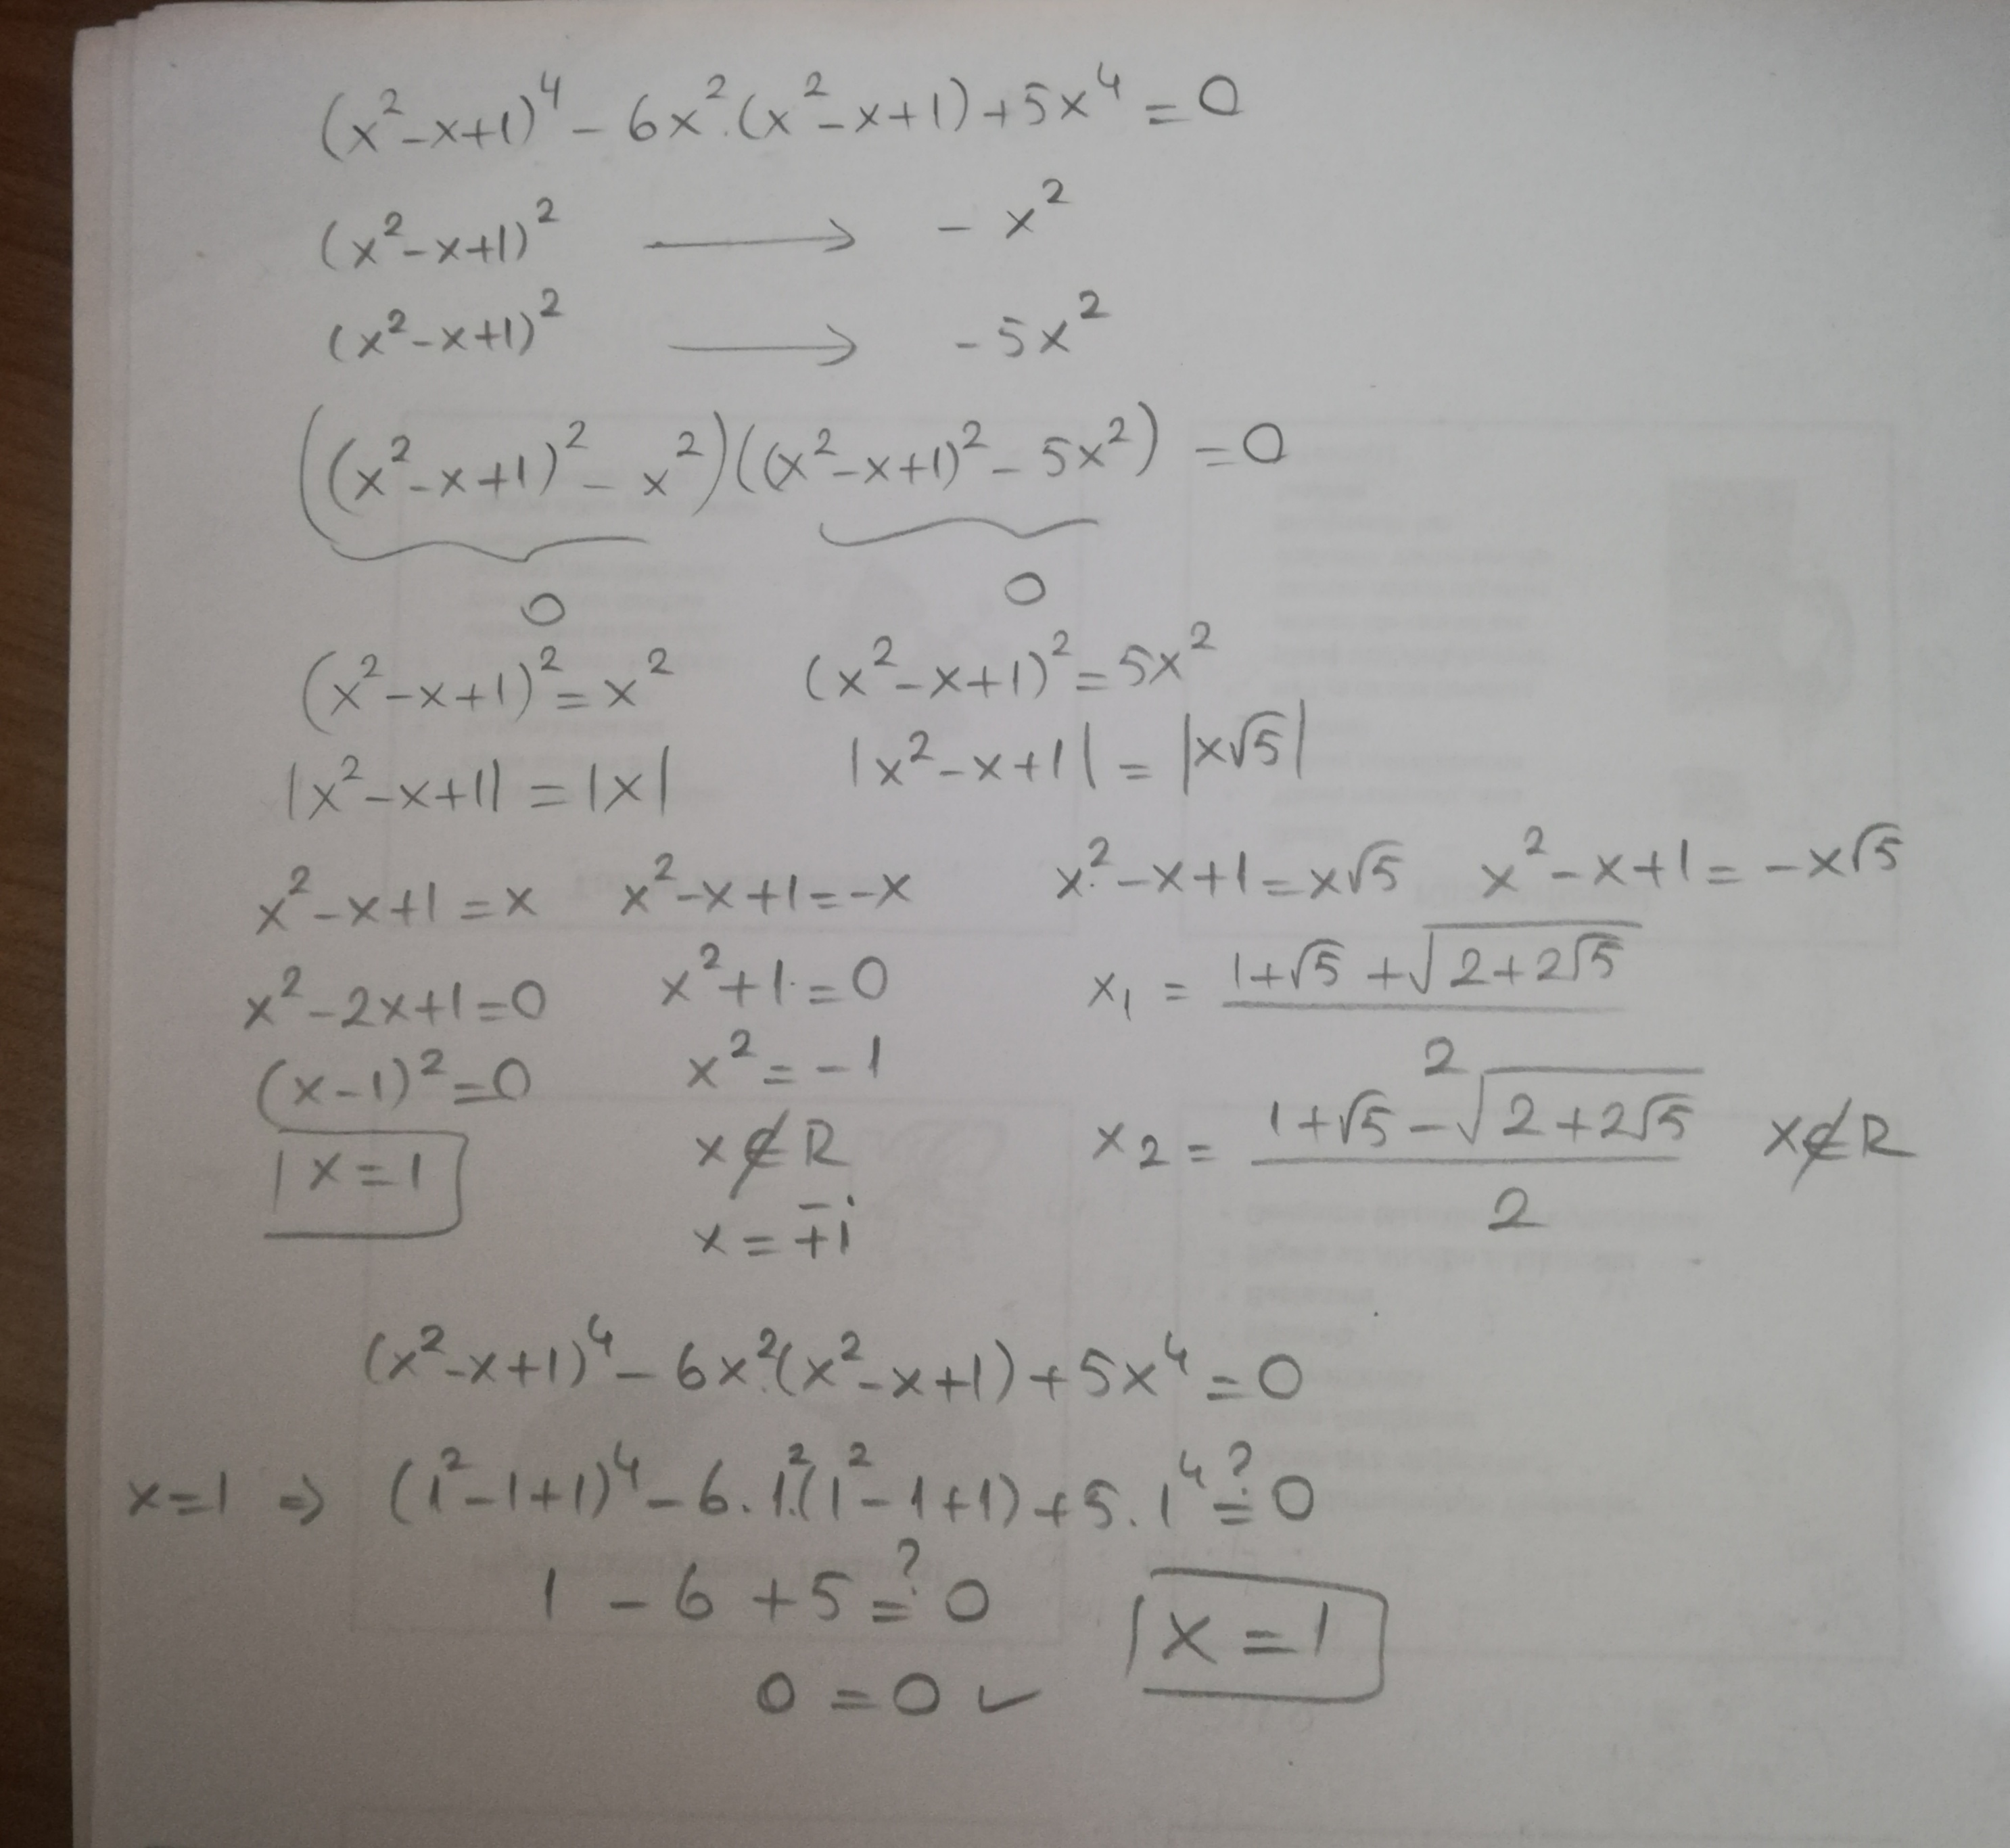 (x²-x+1)⁴ - 6x².(x²-x+1)+5x⁴ = 0
(x²-x+1)² → - x²
(x²-x+1)² → - 5x²
((x²-x+1)² - x²)((x²-x+1)² - 5x²) = 0
0 0
(x²-x+1)² = x² (x²-x+1)² = 5x²
|x²-x+1| = |x| |x²-x+1| = |x√5|
x²-x+1 = x x²-x+1 = -x x²-x+1 = x√5 x²-x+1 = -x√5
x²-2x+1=0 x²+1 = 0 x₁ = (1+√5 + √(2+2√5))/2
(x-1)² = 0 x² = -1
x = 1 x ∉ R x₂ = (1+√5 - √(2+2√5))/2 x ∉ R
x = ∓i
(x²-x+1)⁴ - 6x².(x²-x+1)+5x⁴ = 0
x=1 ⇒ (1²-1+1)⁴ - 6.1².(1²-1+1)+5.1⁴ ≟ 0
1 - 6 + 5 ≟ 0
x = 1
0 = 0 ✓